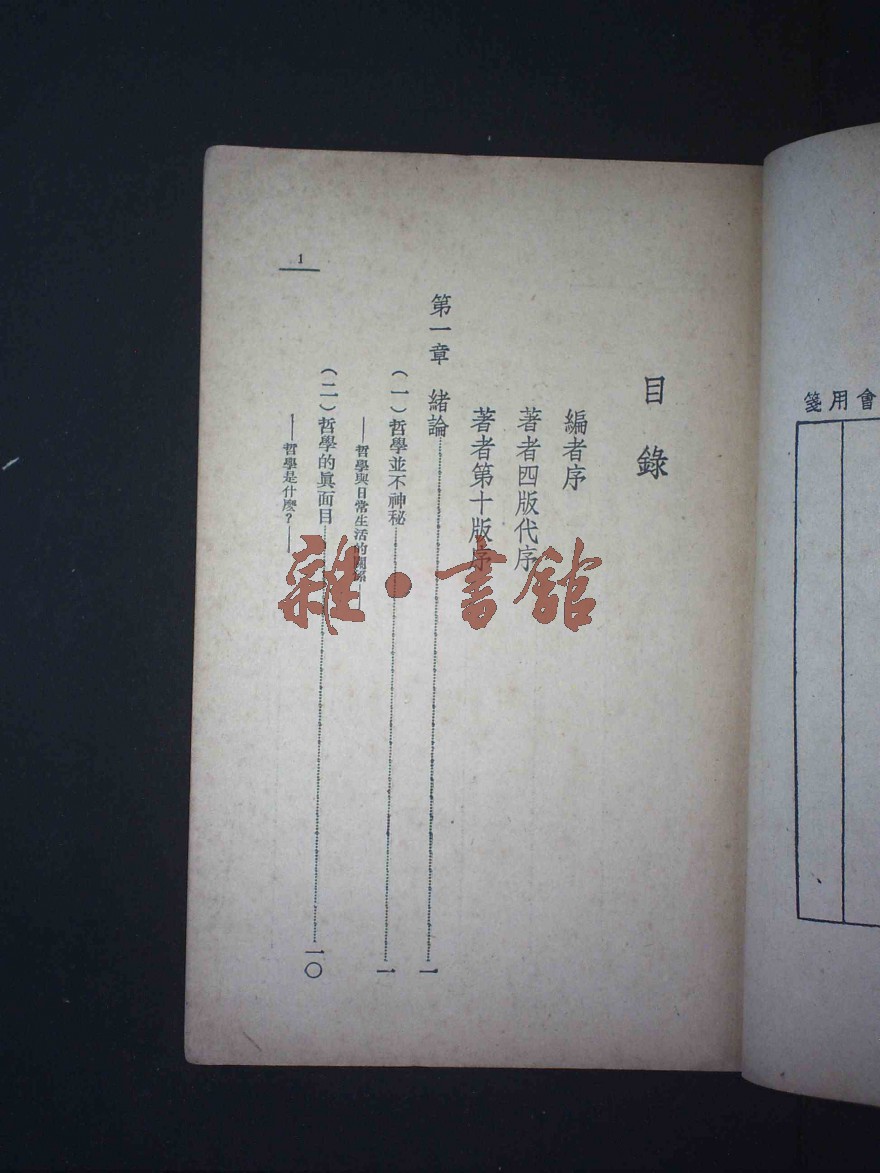 會用箋
目錄
編者序
著者四版代序
著者第十版序
第一章 緒論……一
（一）哲學並不神秘……一
——哲學與日常生活的關係——
（二）哲學的眞面目……一〇
——哲學是什麼？——
1
雜·書館